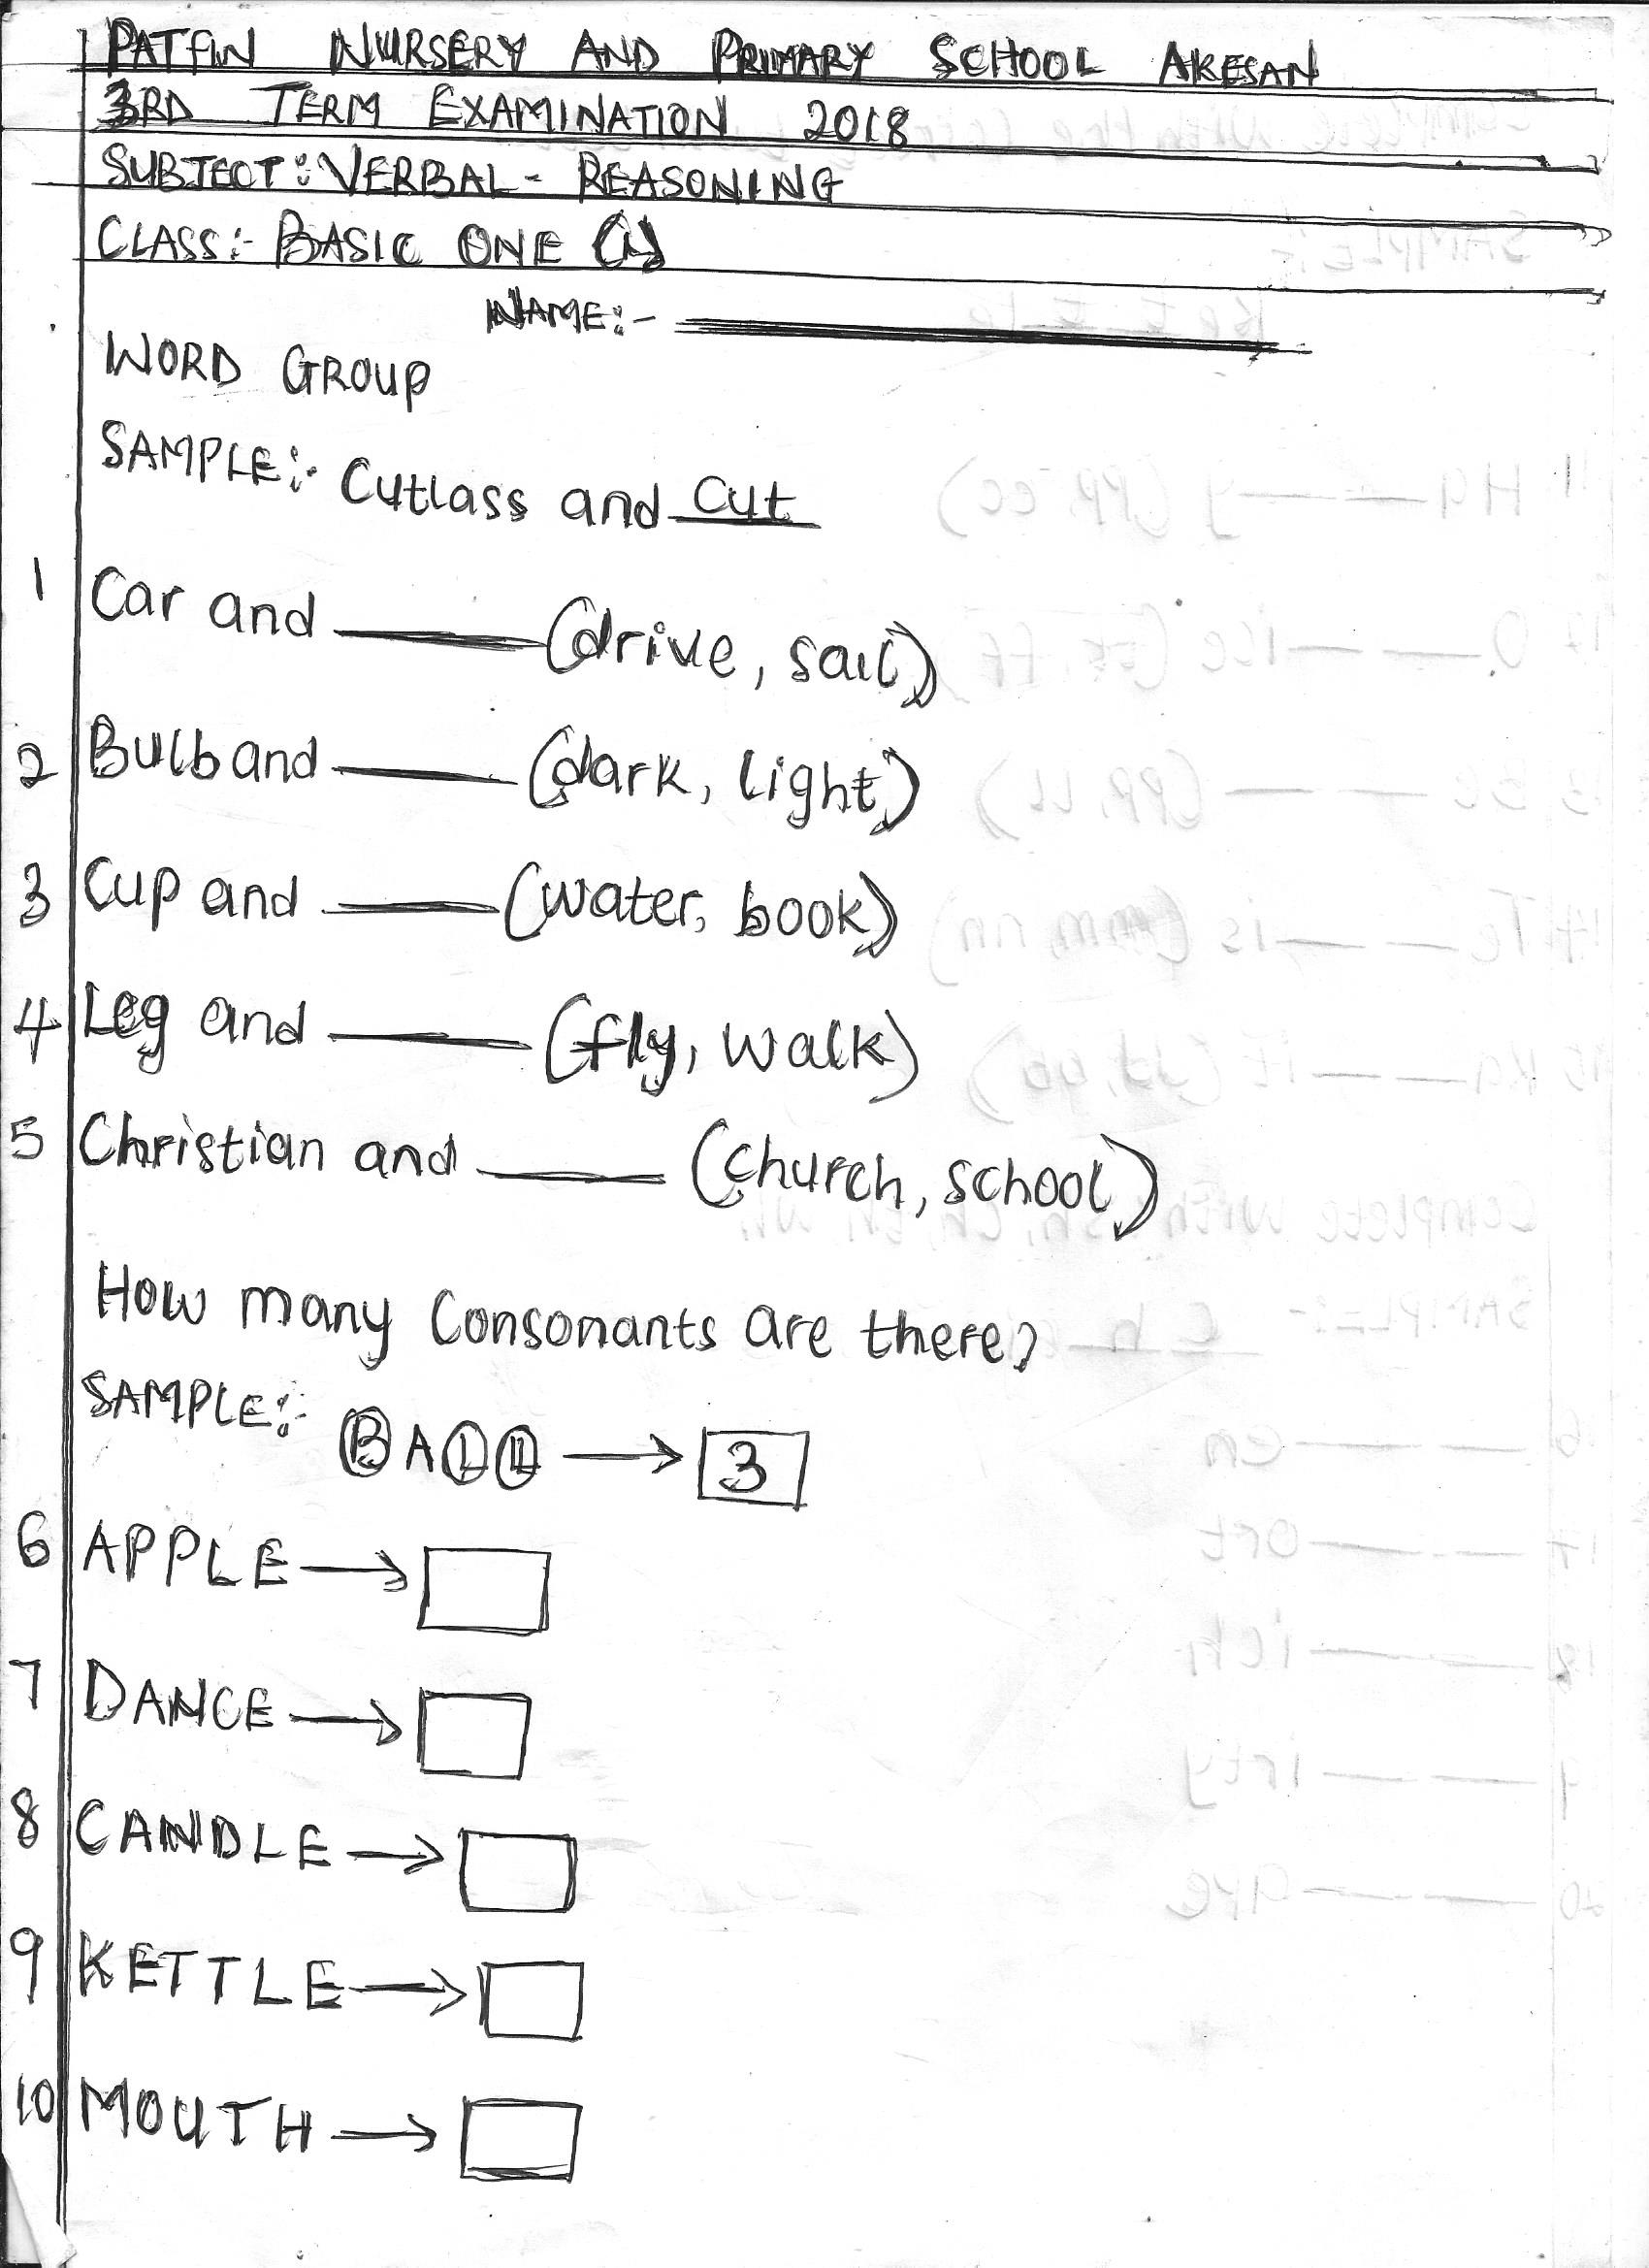 PATFIN NURSERY AND PRIMARY SCHOOL AKESAN
3RD TERM EXAMINATION 2018
SUBJECT: VERBAL- REASONING
CLASS:- BASIC ONE (1)
NAME:-
WORD GROUP
SAMPLE:- Cutlass and cut
1 Car and ____ (drive, sail)
2 Bulb and ____ (dark, light)
3 Cup and ____ (water, book)
4 Leg and ____ (fly, walk)
5 Christian and ____ (church, school)
How many Consonants are there?
SAMPLE:- BALL → 3
6 APPLE →
7 DANCE →
8 CANDLE →
9 KETTLE →
10 MOUTH →